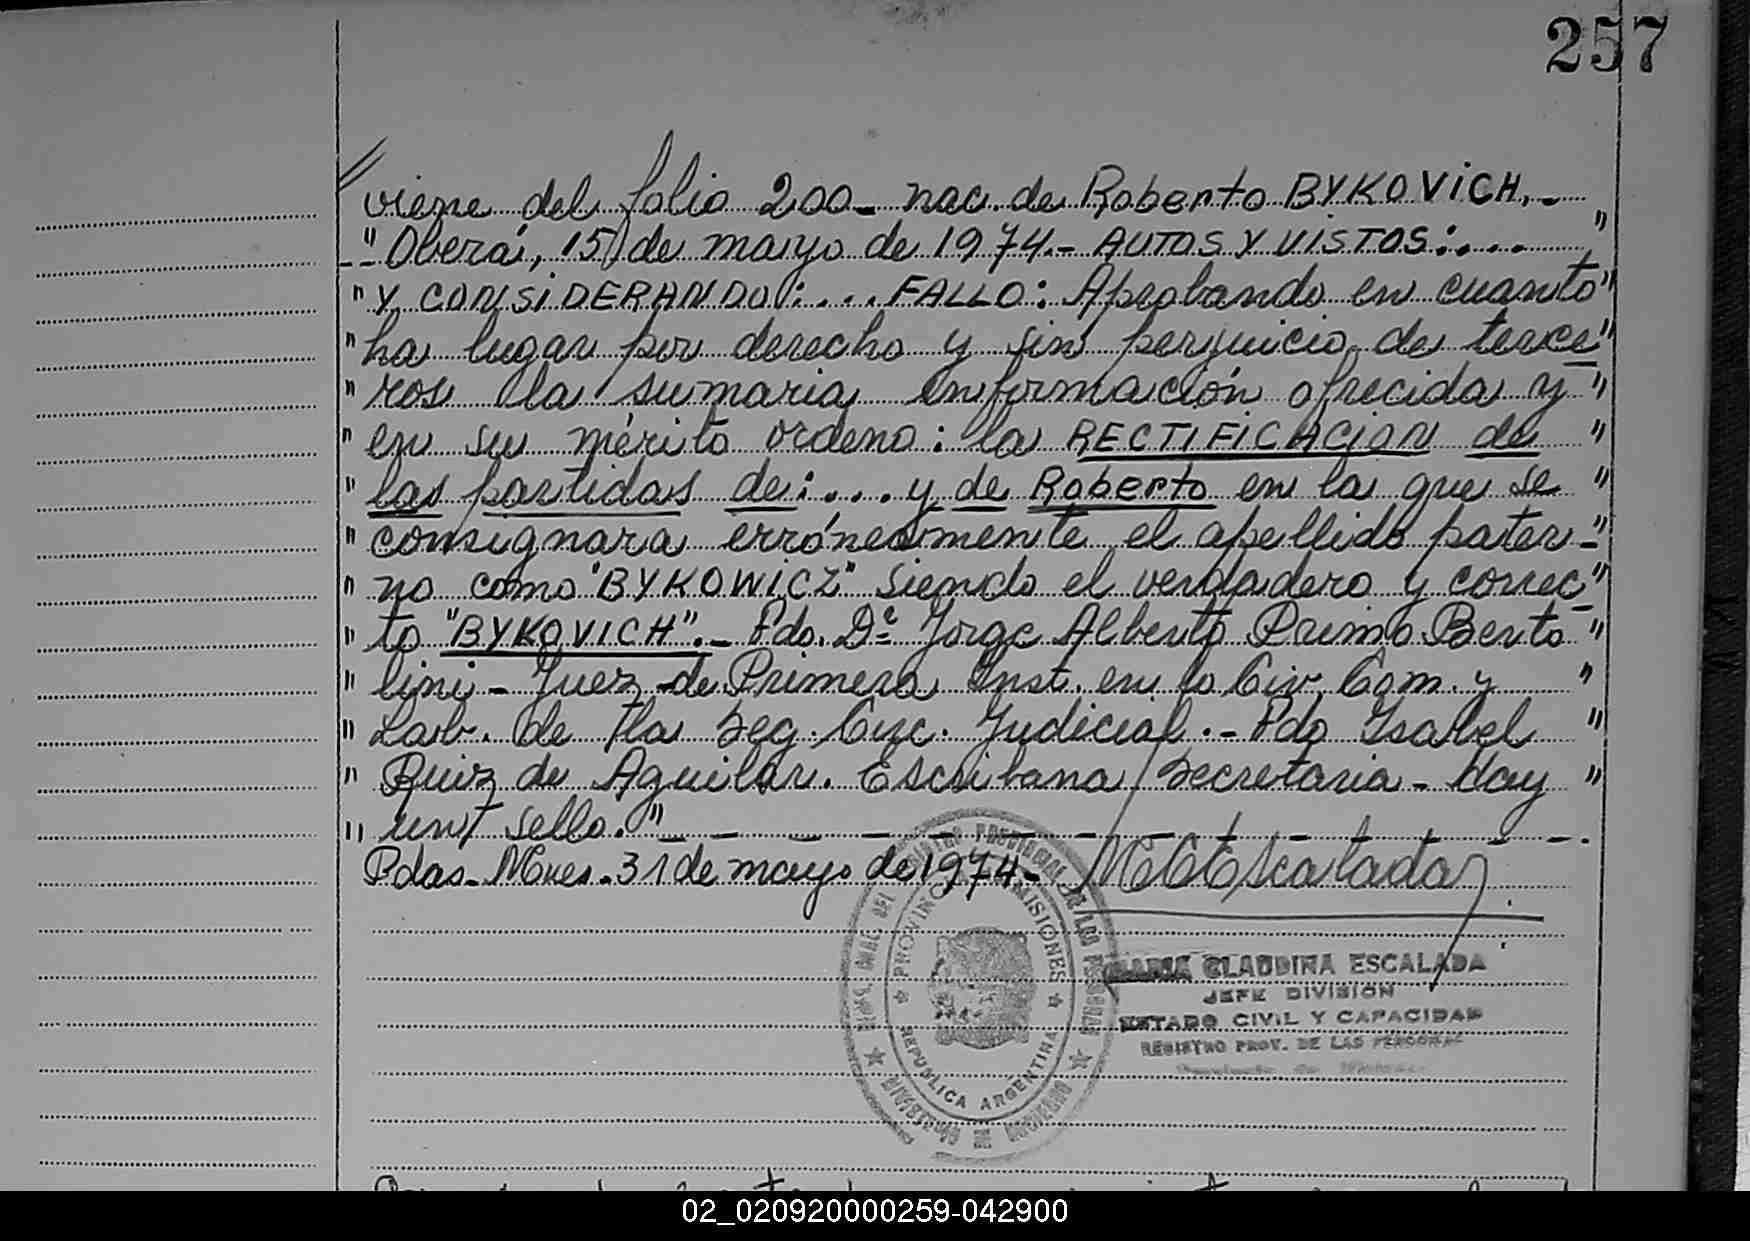 257
viene del folio 200_ nac. de Roberto BYKOVICH._
" Oberá, 15 de mayo de 1974.- AUTOS Y VISTOS:.... "
" Y CONSIDERANDO:... FALLO: Aprobando en cuanto "
" ha lugar por derecho y sin perjuicio de terce "
" ros la sumaria información ofrecida y "
" en su mérito ordeno: la RECTIFICACION de "
" las partidas de:.... y de Roberto en la que se "
" consignara erróneamente el apellido pater- "
" no como "BYKOWICZ" siendo el verdadero y correc "
" to "BYKOVICH"._ Fdo. Dr. Jorge Alberto Primo Berto "
" lini - Juez de Primera Inst. en lo Civ. Com. y "
" Lab. de la Seg. Circ. Judicial.- Fdo Isabel "
" Ruiz de Aguilar. Escribana Secretaria - Hay "
" un sello."
Pdas. Mnes. 31 de mayo de 1974-
MCEscalada
REGISTRO PROVINCIAL DE LAS PERSONAS
PROVINCIA MISIONES
REPUBLICA ARGENTINA
MINISTERIO DE GOBIERNO
MARIA CLAUDINA ESCALADA
JEFE DIVISION
ESTADO CIVIL Y CAPACIDAD
REGISTRO PROV. DE LAS PERSONAS
02_020920000259-042900